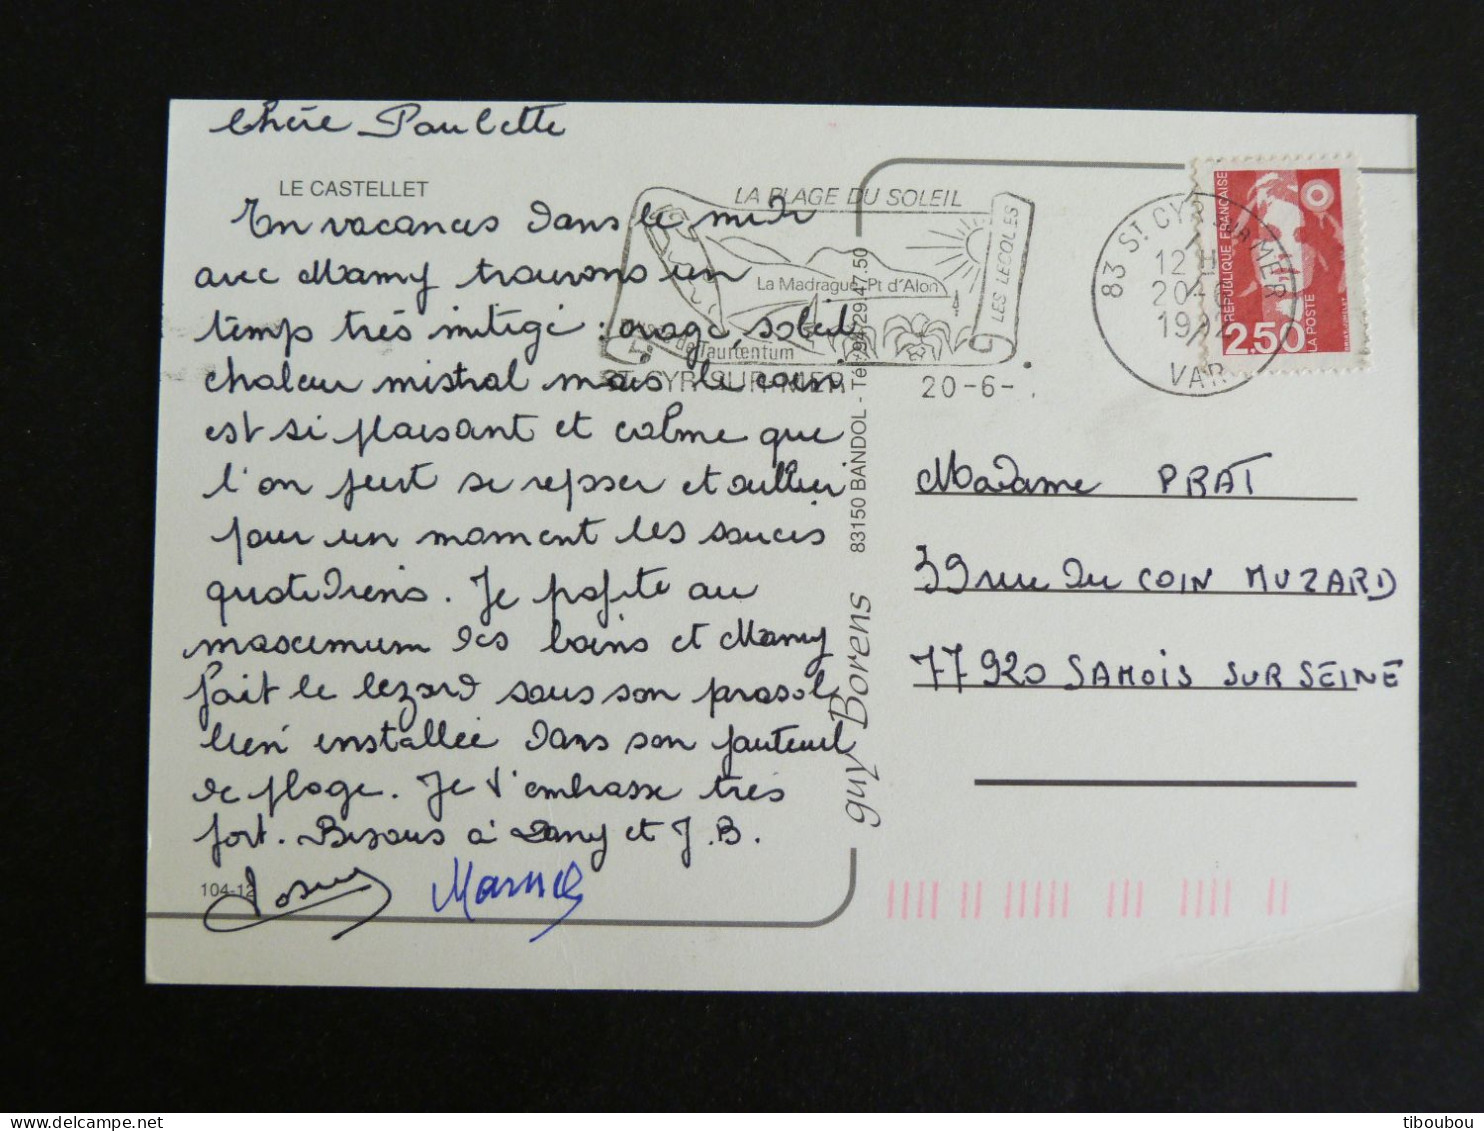 Chère Paulette
LE CASTELLET
En vacances dans le midi
avec Mamy trouvons un
temps très mitigé : orage, soleil
chaleur mistral mais le coin
est si plaisant et calme que
l'on peut se reposer et oublier
pour un moment les soucis
quotidiens. Je profite au
maximum des bains et Mamy
fait le lézard sous son parasol
bien installée dans son fauteuil
de plage. Je t'embrasse très
fort. Bisous à Dany et J.B.
104-12
LA PLAGE DU SOLEIL
La Madrague Pt d'Alon
LES LECQUES
de Tauroentum
ST CYR SUR MER
20-6-
83 ST. CYR SUR MER
12 H
20-6
1992
VAR
REPUBLIQUE FRANÇAISE
2.50
LA POSTE
guy Borens 83150 BANDOL - Tél. 94.29.47.50
Madame PRAT
39 rue du COIN MUZARD
77920 SAMOIS SUR SEINE